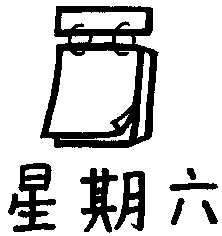 星期六